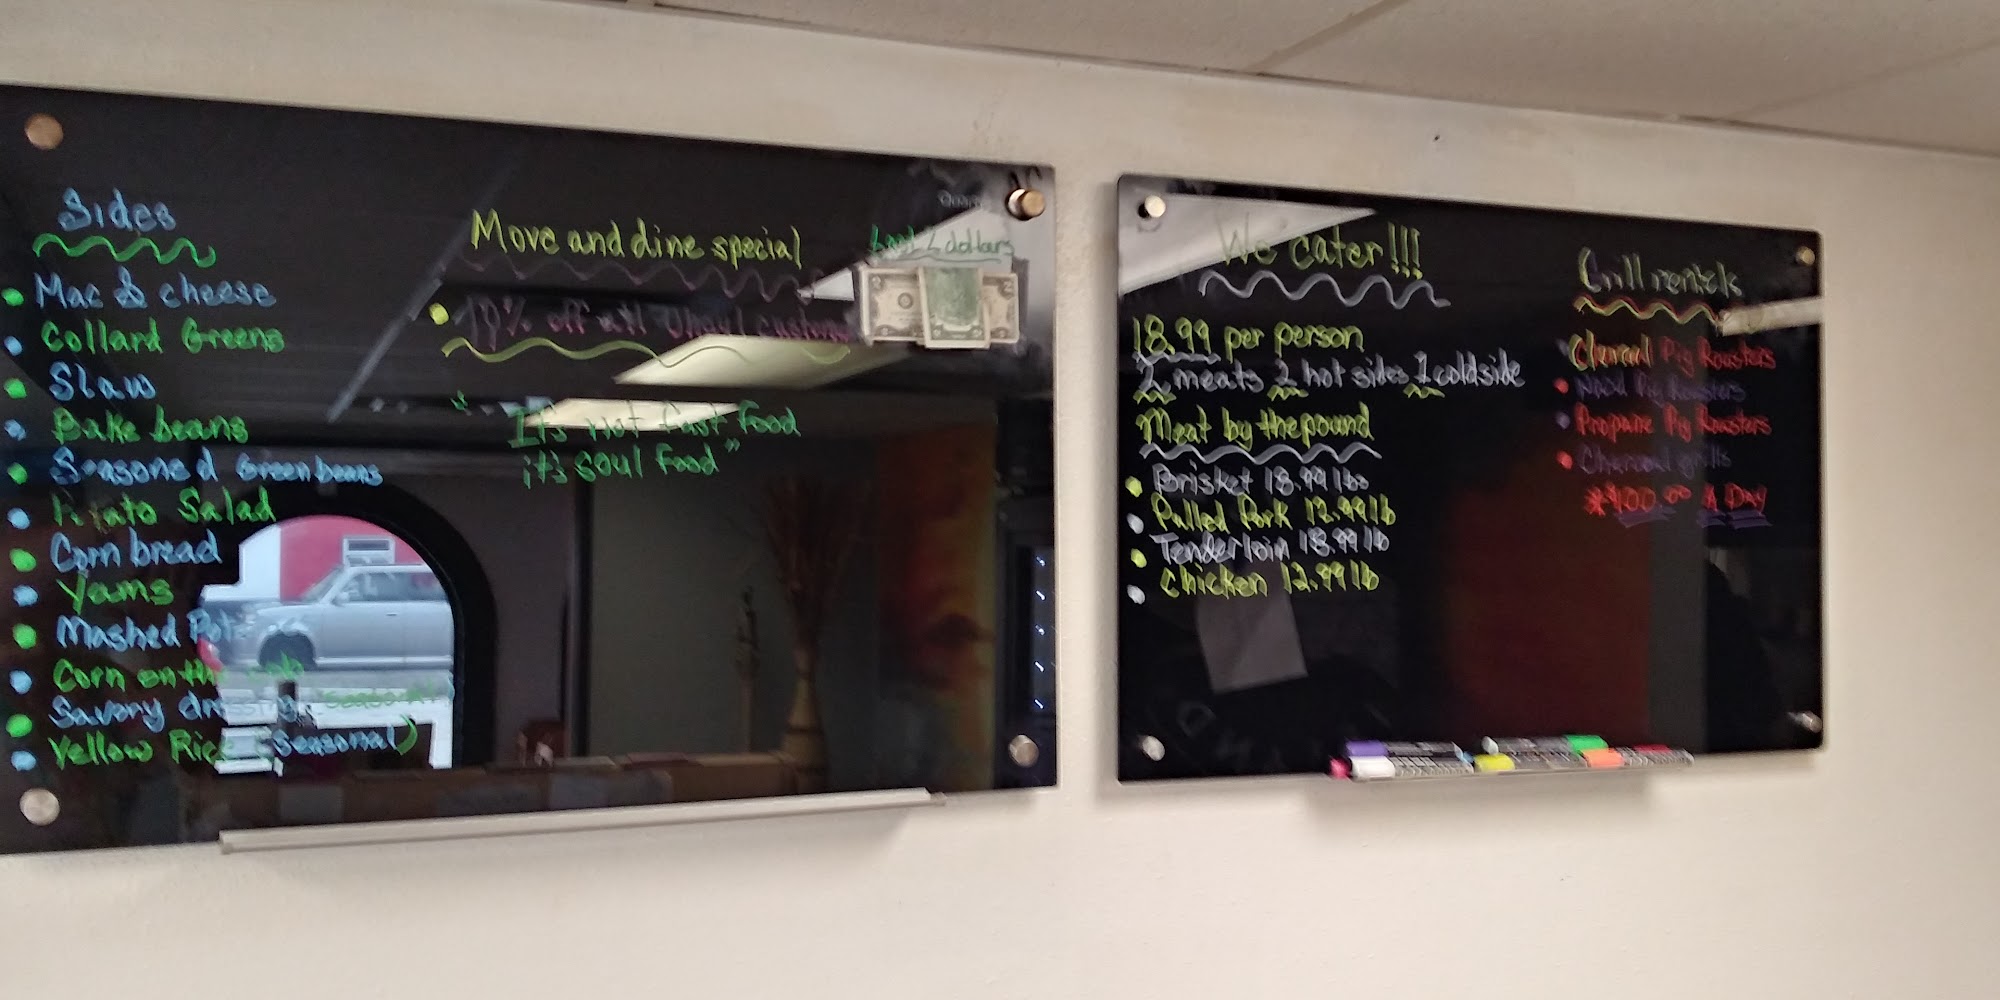 Sides
Mac & cheese
Collard Greens
Slaw
Bake beans
Seasoned Green beans
Potato Salad
Corn bread
Yams
Mashed
Corn on the cob
Savory dressing (seasonal)
Yellow Rice (Seasonal)
Move and dine special
10% off with Uhaul
It's not fast food
it's soul food"
2 dollars
We cater!!!
18.99 per person
2 meats 2 hot sides 1 cold side
Meat by the pound
Brisket 18.99 lbs
Pulled Pork 12.99 lb
Tenderloin 18.99 lb
Chicken 12.99 lb
Grill rentals
Charcoal Pig Roasters
Wood Pig Roasters
Propane Pig Roasters
Charcoal grills
A Day